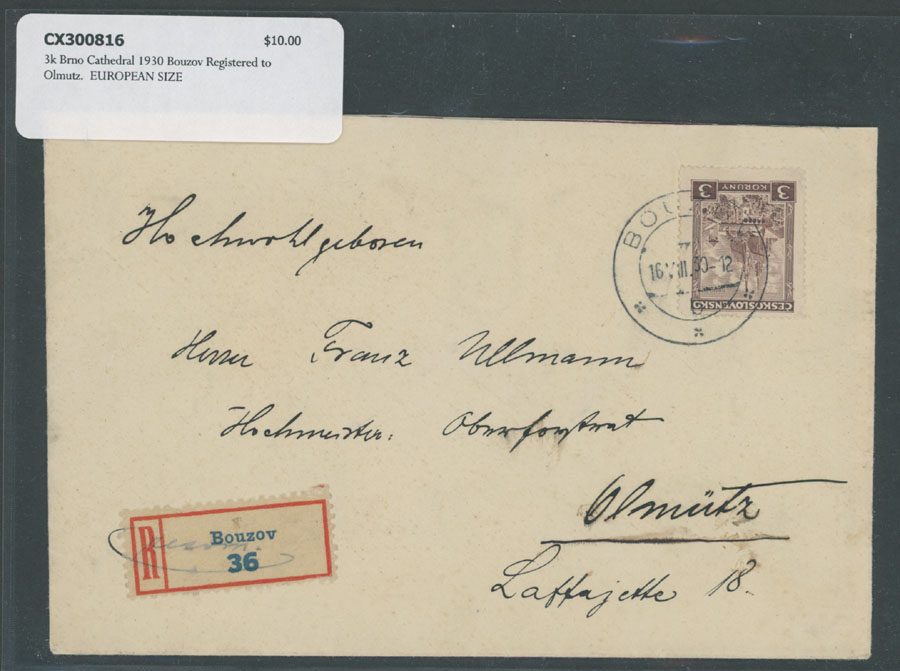 CX300816 $10.00
3k Brno Cathedral 1930 Bouzov Registered to
Olmutz. EUROPEAN SIZE
3 KORUNY 3
ČESKOSLOVENSKO
BOU
16.VIII.30-12
Hochwohlgeboren
Herrn Franz Ullmann
Hochmeister. Oberforstrat
Olmütz
Laffajette 18.
R
Bouzov
36